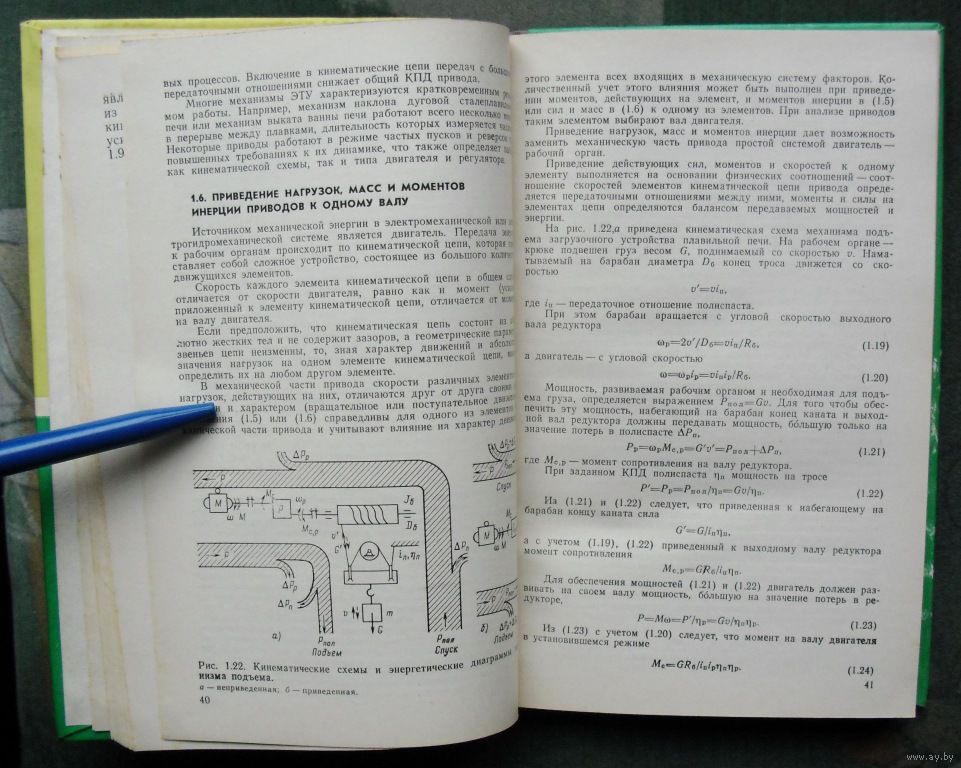 явл
из
кин
усл
1.9
вых процессов. Включение в кинематические цепи передач с
передаточными отношениями снижает общий КПД привода.
Многие механизмы ЭТУ характеризуются кратковременным
мом работы. Например, механизм наклона дуговой
печи или механизм выката ванны печи работают всего несколько
в перерыве между плавками, длительность которых измеряется
Некоторые приводы работают в режиме частых пусков и
повышенных требованиях к их динамике, что также определяет
как кинематической схемы, так и типа двигателя и регулятора.
1.6. ПРИВЕДЕНИЕ НАГРУЗОК, МАСС И МОМЕНТОВ
ИНЕРЦИИ ПРИВОДОВ К ОДНОМУ ВАЛУ
Источником механической энергии в электромеханической или
трогидромеханической системе является двигатель. Передача
к рабочим органам происходит по кинематической цепи, которая
ставляет собой сложное устройство, состоящее из большого
движущихся элементов.
Скорость каждого элемента кинематической цепи в общем
отличается от скорости двигателя, равно как и момент
приложенный к элементу кинематической цепи, отличается от
на валу двигателя.
Если предположить, что кинематическая цепь состоит из
лютно жестких тел и не содержит зазоров, а геометрические
звеньев цепи неизменны, то, зная характер движений и
значения нагрузок на одном элементе кинематической цепи,
определить их на любом другом элементе.
В механической части привода скорости различных
нагрузок, действующих на них, отличаются друг от друга
и характером (вращательное или поступательное
(1.5) или (1.6) справедливы для одного из
механической части привода и учитывают влияние на характер
ΔPр
P
M
ω M
Mс
P
ωр
Mс,р
Jб
Dб
v'
G'
iп, ηп
P
ΔPп
ΔPп
v
m
G
а)
Pпол
Подъем
Pпол
Спуск
Спуск
M
б)
Подъем
Рис. 1.22. Кинематические схемы и энергетические диаграммы
низма подъема.
а — неприведенная; б — приведенная.
40
этого элемента всех входящих в механическую систему факторов. Ко-
личественный учет этого влияния может быть выполнен при приведе-
нии моментов, действующих на элемент, и моментов инерции в (1.5)
или сил и масс в (1.6) к одному из элементов. При анализе приводов
таким элементом выбирают вал двигателя.
Приведение нагрузок, масс и моментов инерции дает возможность
заменить механическую часть привода простой системой двигатель —
рабочий орган.
Приведение действующих сил, моментов и скоростей к одному
элементу выполняется на основании физических соотношений — соот-
ношение скоростей элементов кинематической цепи привода опреде-
ляется передаточными отношениями между ними, моменты и силы на
элементах цепи определяются балансом передаваемых мощностей и
энергии.
На рис. 1.22,а приведена кинематическая схема механизма подъ-
ема загрузочного устройства плавильной печи. На рабочем органе —
крюке подвешен груз весом G, поднимаемый со скоростью v. Нама-
тываемый на барабан диаметра Dб конец троса движется со ско-
ростью
v'=viп,
где iп — передаточное отношение полиспаста.
При этом барабан вращается с угловой скоростью выходного
вала редуктора
ωр=2v'/Dб=viп/Rб, (1.19)
а двигатель — с угловой скоростью
ω=ωрiр=viпiр/Rб. (1.20)
Мощность, развиваемая рабочим органом и необходимая для подъ-
ема груза, определяется выражением Pпол=Gv. Для того чтобы обес-
печить эту мощность, набегающий на барабан конец каната и выход-
ной вал редуктора должны передавать мощность, бо́льшую только на
значение потерь в полиспасте ΔPп,
Pр=ωрMс,р=G'v'=Pпол+ΔPп, (1.21)
где Mс,р — момент сопротивления на валу редуктора.
При заданном КПД полиспаста ηп мощность на тросе
P'=Pр=Pпол/ηп=Gv/ηп. (1.22)
Из (1.21) и (1.22) следует, что приведенная к набегающему на
барабан концу каната сила
G'=G/iпηп,
а с учетом (1.19), (1.22) приведенный к выходному валу редуктора
момент сопротивления
Mс,р=GRб/iпηп.
Для обеспечения мощностей (1.21) и (1.22) двигатель должен раз-
вивать на своем валу мощность, бо́льшую на значение потерь в ре-
дукторе,
P=Mω=P'/ηр=Gv/ηпηр. (1.23)
Из (1.23) с учетом (1.20) следует, что момент на валу двигателя
в установившемся режиме
Mс=GRб/iпiрηпηр. (1.24)
41
www.ay.by